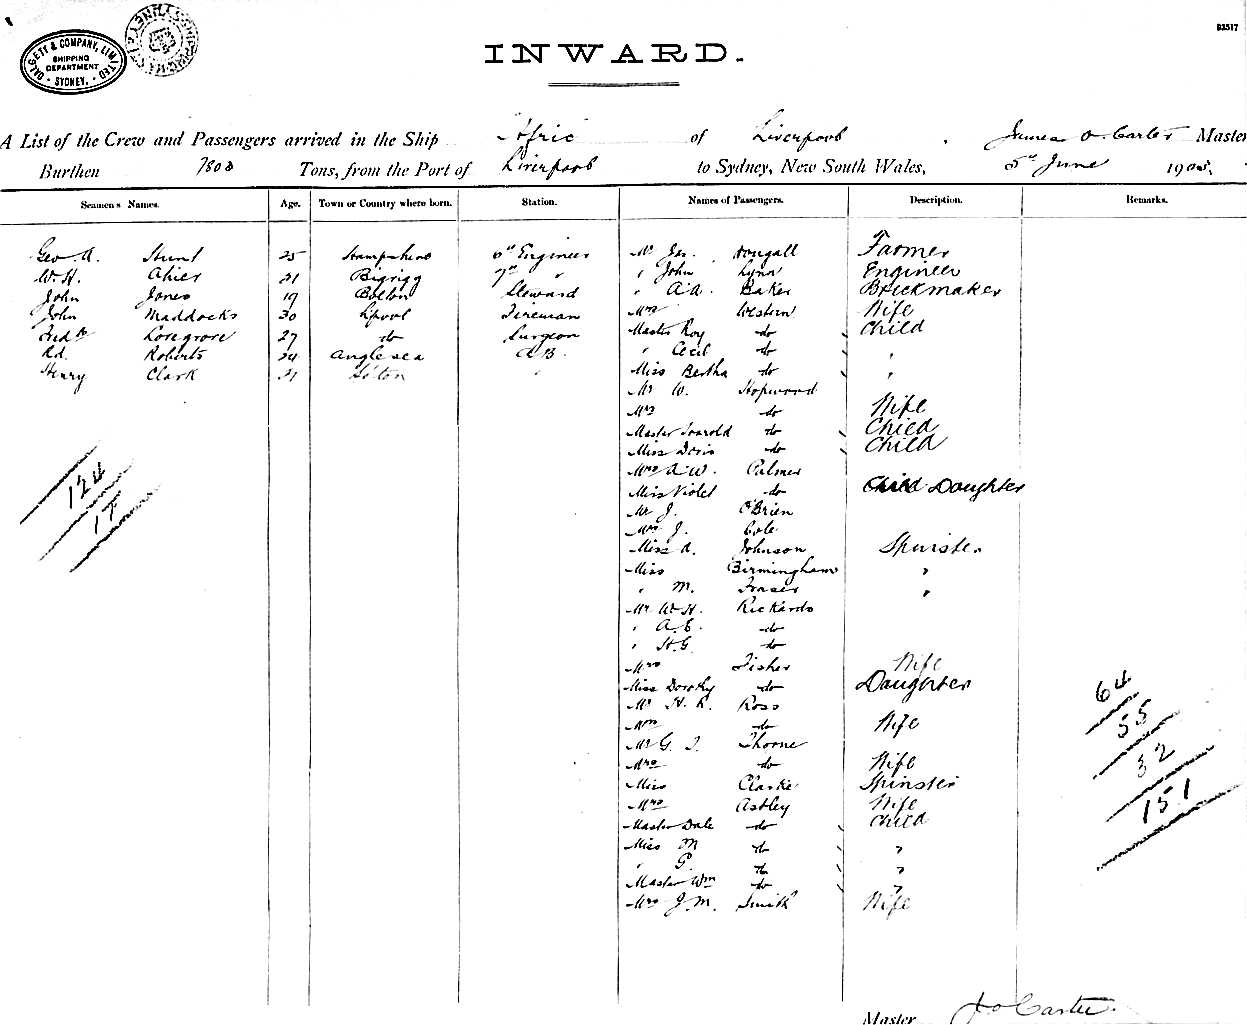 DALGETY & COMPANY, LIMITED
SHIPPING
DEPARTMENT
SYDNEY.
B3517
INWARD.
A List of the Crew and Passengers arrived in the Ship Afric of Liverpool, James O. Carter Master
Burthen 7808 Tons, from the Port of Liverpool to Sydney, New South Wales, 5th June 1905.
Seamen's Names. Age. Town or Country where born. Station. Names of Passengers. Description. Remarks.
Geo. A. Hunt 25 Hampshire Engineer Mr Jas. Dougall Farmer
W. H. Ahier 21 Bigrigg 7th " " John Lynn Engineer
John Jones 19 Bolton Steward " A. A. Baker Brickmaker
John Maddocks 30 Lpool Fireman Mrs Western Wife
Fredk Losegrove 27 do Surgeon Master Roy do Child
Rd. Roberts 24 Anglesea A.B. " Cecil do "
Henry Clark 21 " Miss Bertha do "
Mr W. Hopwood
Mrs do Wife
Master Harold do Child
Miss Doris do Child
Mrs A. W. Palmer
Miss Violet do Daughter
Mr J. O'Brien
Mrs J. Cole
Miss A. Johnson Spinster
Miss Birmingham "
" M. Fraser "
Mr W. H. Rickards
" A. E. do
" H. G. do
Mrs Fisher Wife
Miss Dorothy do Daughter
Mr H. R. Ross
Mrs do Wife
Mr G. J. Thorne
Mrs do Wife
Miss Clarke Spinster
Mrs Astley Wife
Master Dale do Child
Miss M do "
" G. do "
Master Wm do "
Mrs J. M. Smith Wife
124
17
64
55
32
151
Master J O Carter.